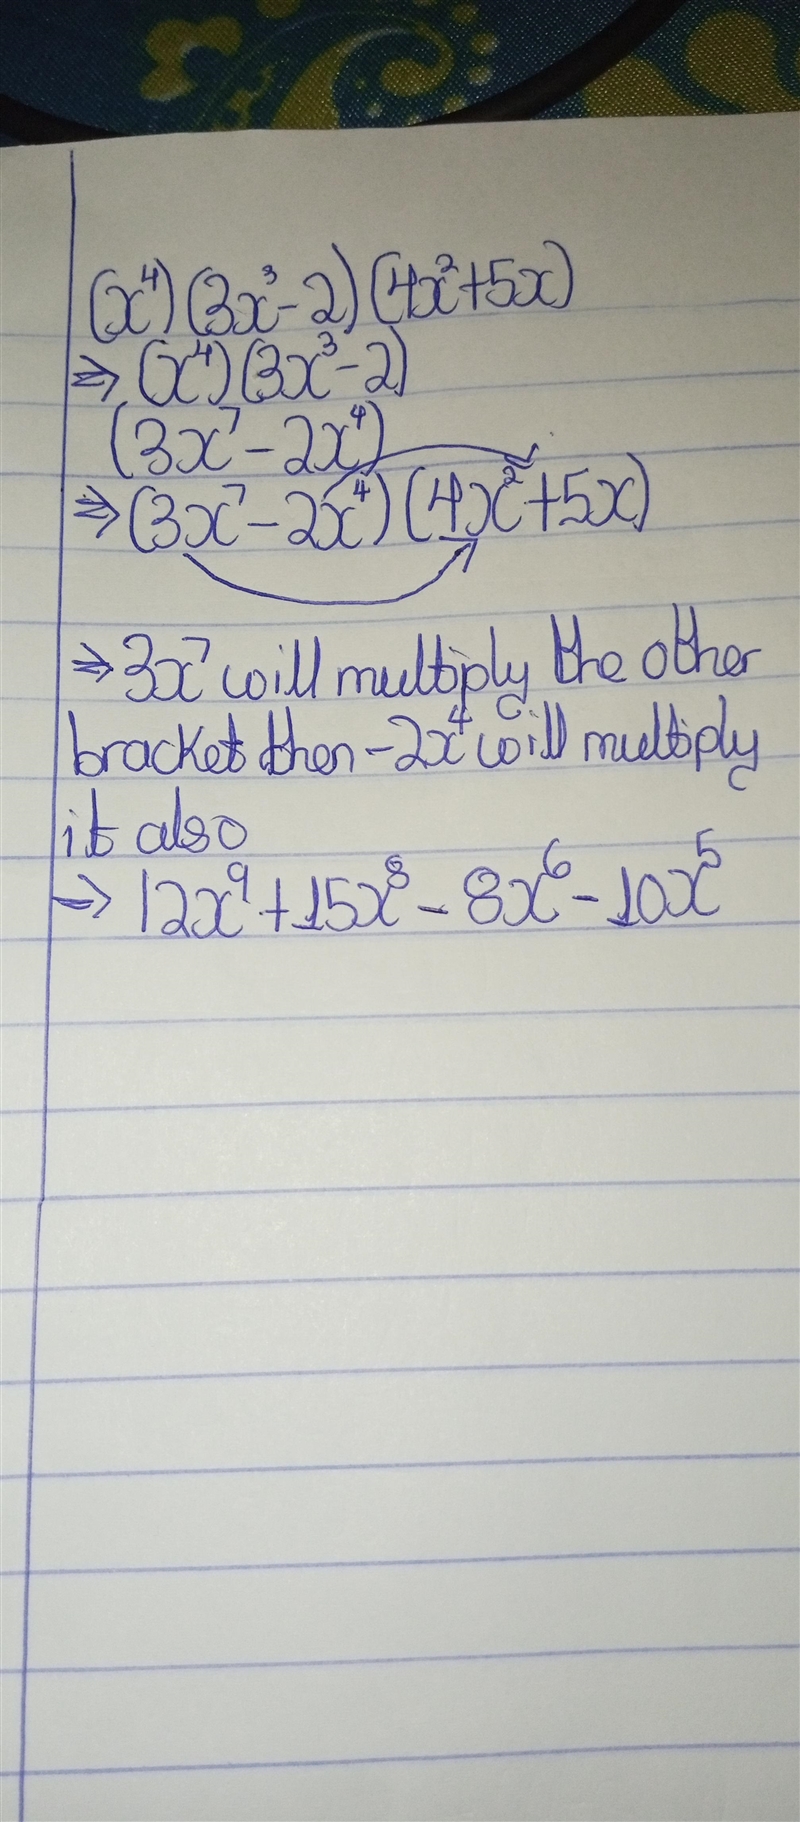 (x⁴)(3x³-2)(4x²+5x)
⇒ (x⁴)(3x³-2)
(3x⁷-2x⁴)
⇒ (3x⁷-2x⁴)(4x²+5x)
⇒ 3x⁷ will multiply the other
bracket then -2x⁴ will multiply
it also
→ 12x⁹+15x⁸-8x⁶-10x⁵